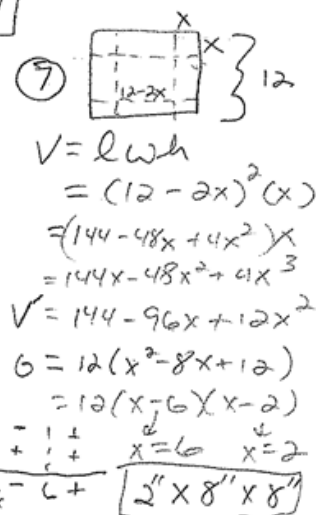 x
⑦ x
12-2x } 12
V = lwh
= (12 - 2x)²(x)
=(144-48x+4x²)x
=144x-48x²+4x³
V' = 144-96x+12x²
0 = 12(x²-8x+12)
=12(x-6)(x-2)
- | +
+ | + x=6 x=2
- 6 + 2" x 8" x 8"